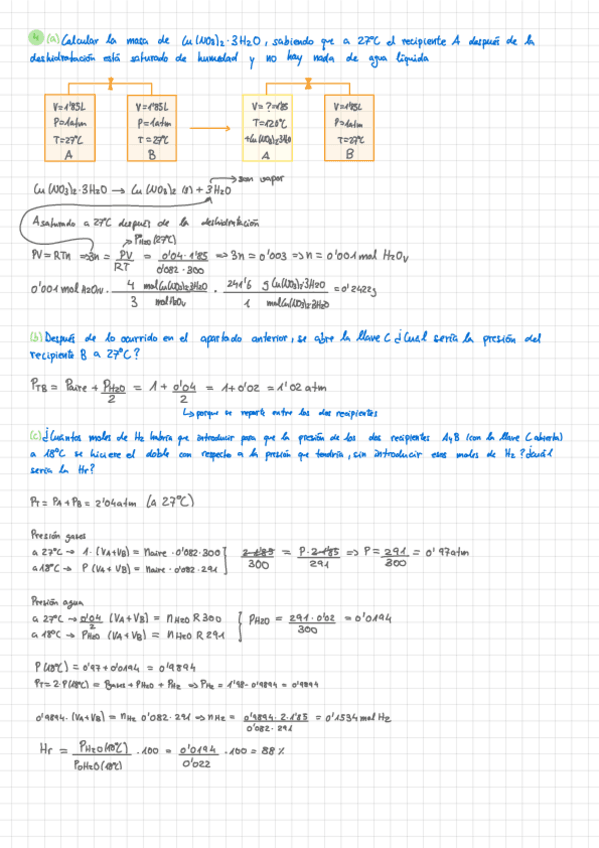 4 (a) Calcular la masa de Cu(NO3)2·3H2O, sabiendo que a 27ºC el recipiente A después de la
deshidratación está saturado de humedad y no hay nada de agua líquida
V=1'85L
P=1atm
T=27ºC
A
V=1'85L
P=1atm
T=27ºC
B
V=?=1'85
T=120ºC
+Cu(NO3)2·3H2O
A
V=1'85L
P=1atm
T=27ºC
B
son vapor
Cu(NO3)2·3H2O → Cu(NO3)2 (s) + 3H2O
A saturado a 27ºC después de la deshidratación
PºH2O (27ºC)
PV=RTn ⇒ 3n = PV/RT = 0'04·1'85/0'082·300 ⇒ 3n = 0'003 ⇒ n = 0'001 mol H2Ov
0'001 mol H2Ov · 4 mol Cu(NO3)2·3H2O/3 mol H2Ov · 241'6 g Cu(NO3)2·3H2O/1 mol Cu(NO3)2·3H2O = 0'2422g
(b) Después de lo ocurrido en el apartado anterior, se abre la llave C ¿Cual sería la presión del
recipiente B a 27ºC?
PTB = Paire + PH2O/2 = 1 + 0'04/2 = 1+0'02 = 1'02 atm
↳ porque se reparte entre los dos recipientes
(c) ¿Cuántos moles de H2 habría que introducir para que la presión de los dos recipientes A y B (con la llave C abierta)
a 18ºC se hiciese el doble con respecto a la presión que tendría, sin introducir esos moles de H2? ¿cuál
sería la Hr?
PT = PA + PB = 2'04atm (a 27ºC)
Presión gases
a 27ºC → 1·(VA+VB) = naire·0'082·300
a 18ºC → P(VA+VB) = naire·0'082·291
2·1'85/300 = P·2·1'85/291 ⇒ P = 291/300 = 0'97atm
Presión agua
a 27ºC → 0'04/2 (VA+VB) = nH2O R 300
a 18ºC → PH2O (VA+VB) = nH2O R 291
PH2O = 291·0'02/300 = 0'0194
P(18ºC) = 0'97 + 0'0194 = 0'9894
PT = 2·P(18ºC) = Pgases + PH2O + PH2 ⇒ PH2 = 1'98 - 0'9894 = 0'9894
0'9894·(VA+VB) = nH2 0'082·291 ⇒ nH2 = 0'9894·2·1'85/0'082·291 = 0'1534 mol H2
Hr = PH2O(18ºC)/PºH2O(18ºC) · 100 = 0'0194/0'022 · 100 = 88 %